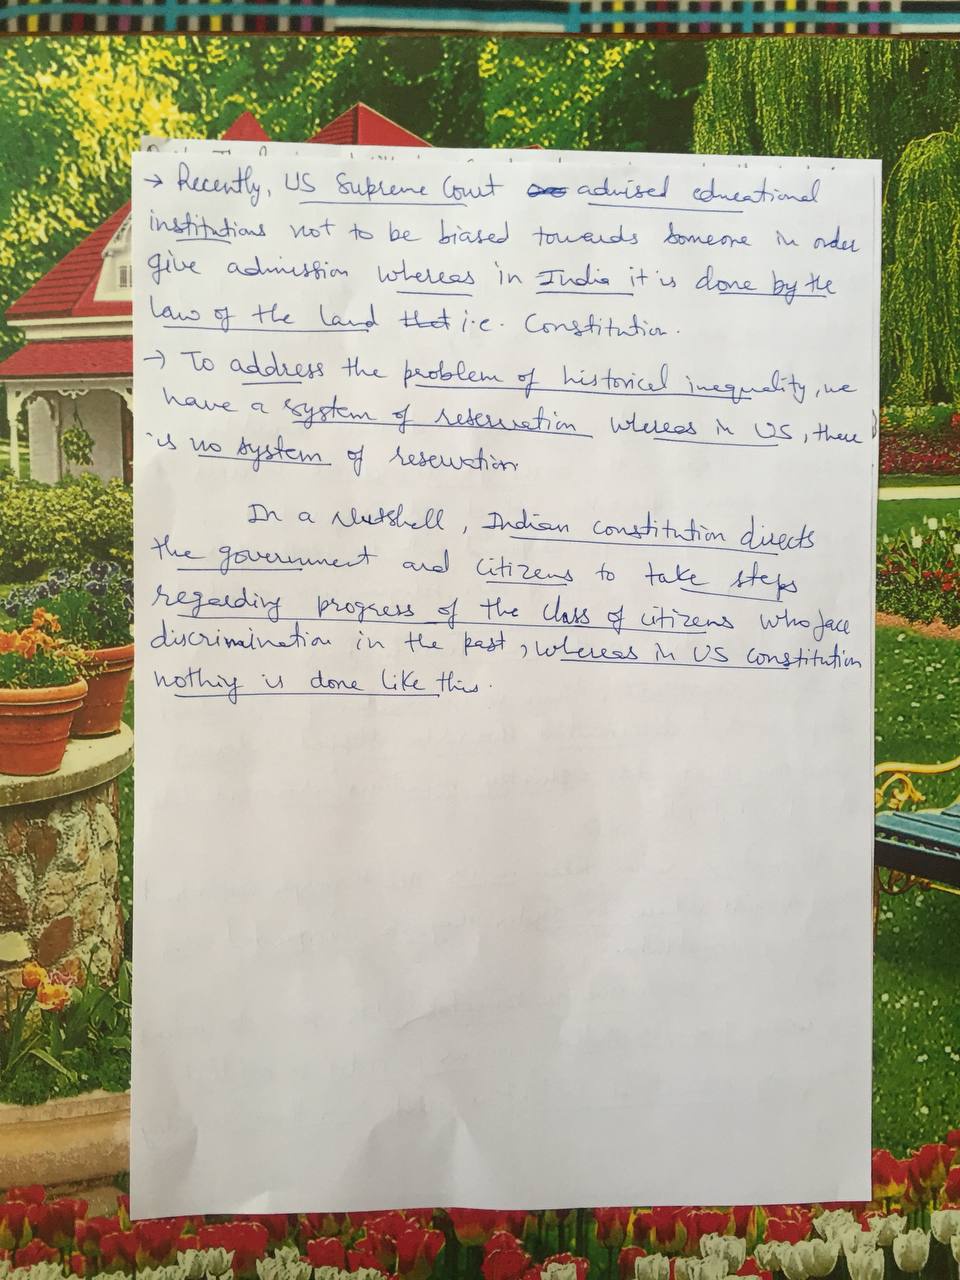 → Recently, US Supreme Court advised educational
institutions not to be biased towards someone in order
give admission whereas in India it is done by the
law of the land that i.e. Constitution.
→ To address the problem of historical inequality, we
have a system of reservation whereas in US, there
is no system of reservation
In a Nutshell, Indian constitution directs
the government and citizens to take steps
regarding progress of the class of citizens who face
discrimination in the past, whereas in US constitution
nothing is done like this.